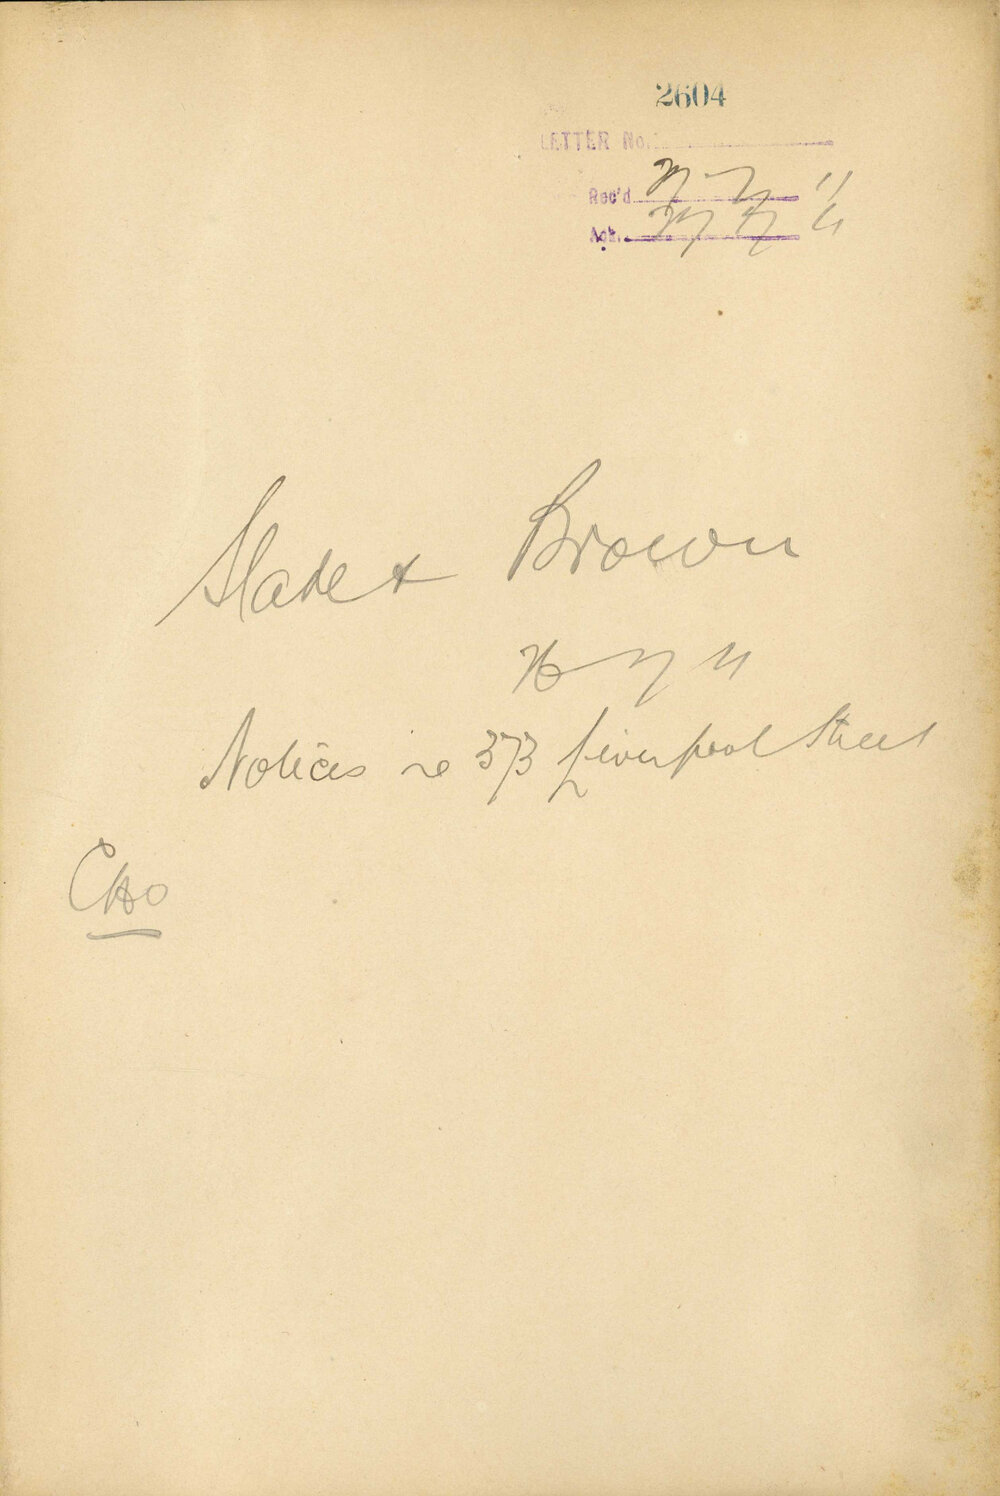 2604
LETTER No.
Rec'd 27 7 11
Ack. 27 7 11
Slade & Brown
26 7 11
Notices re 373 Liverpool Street
CHO